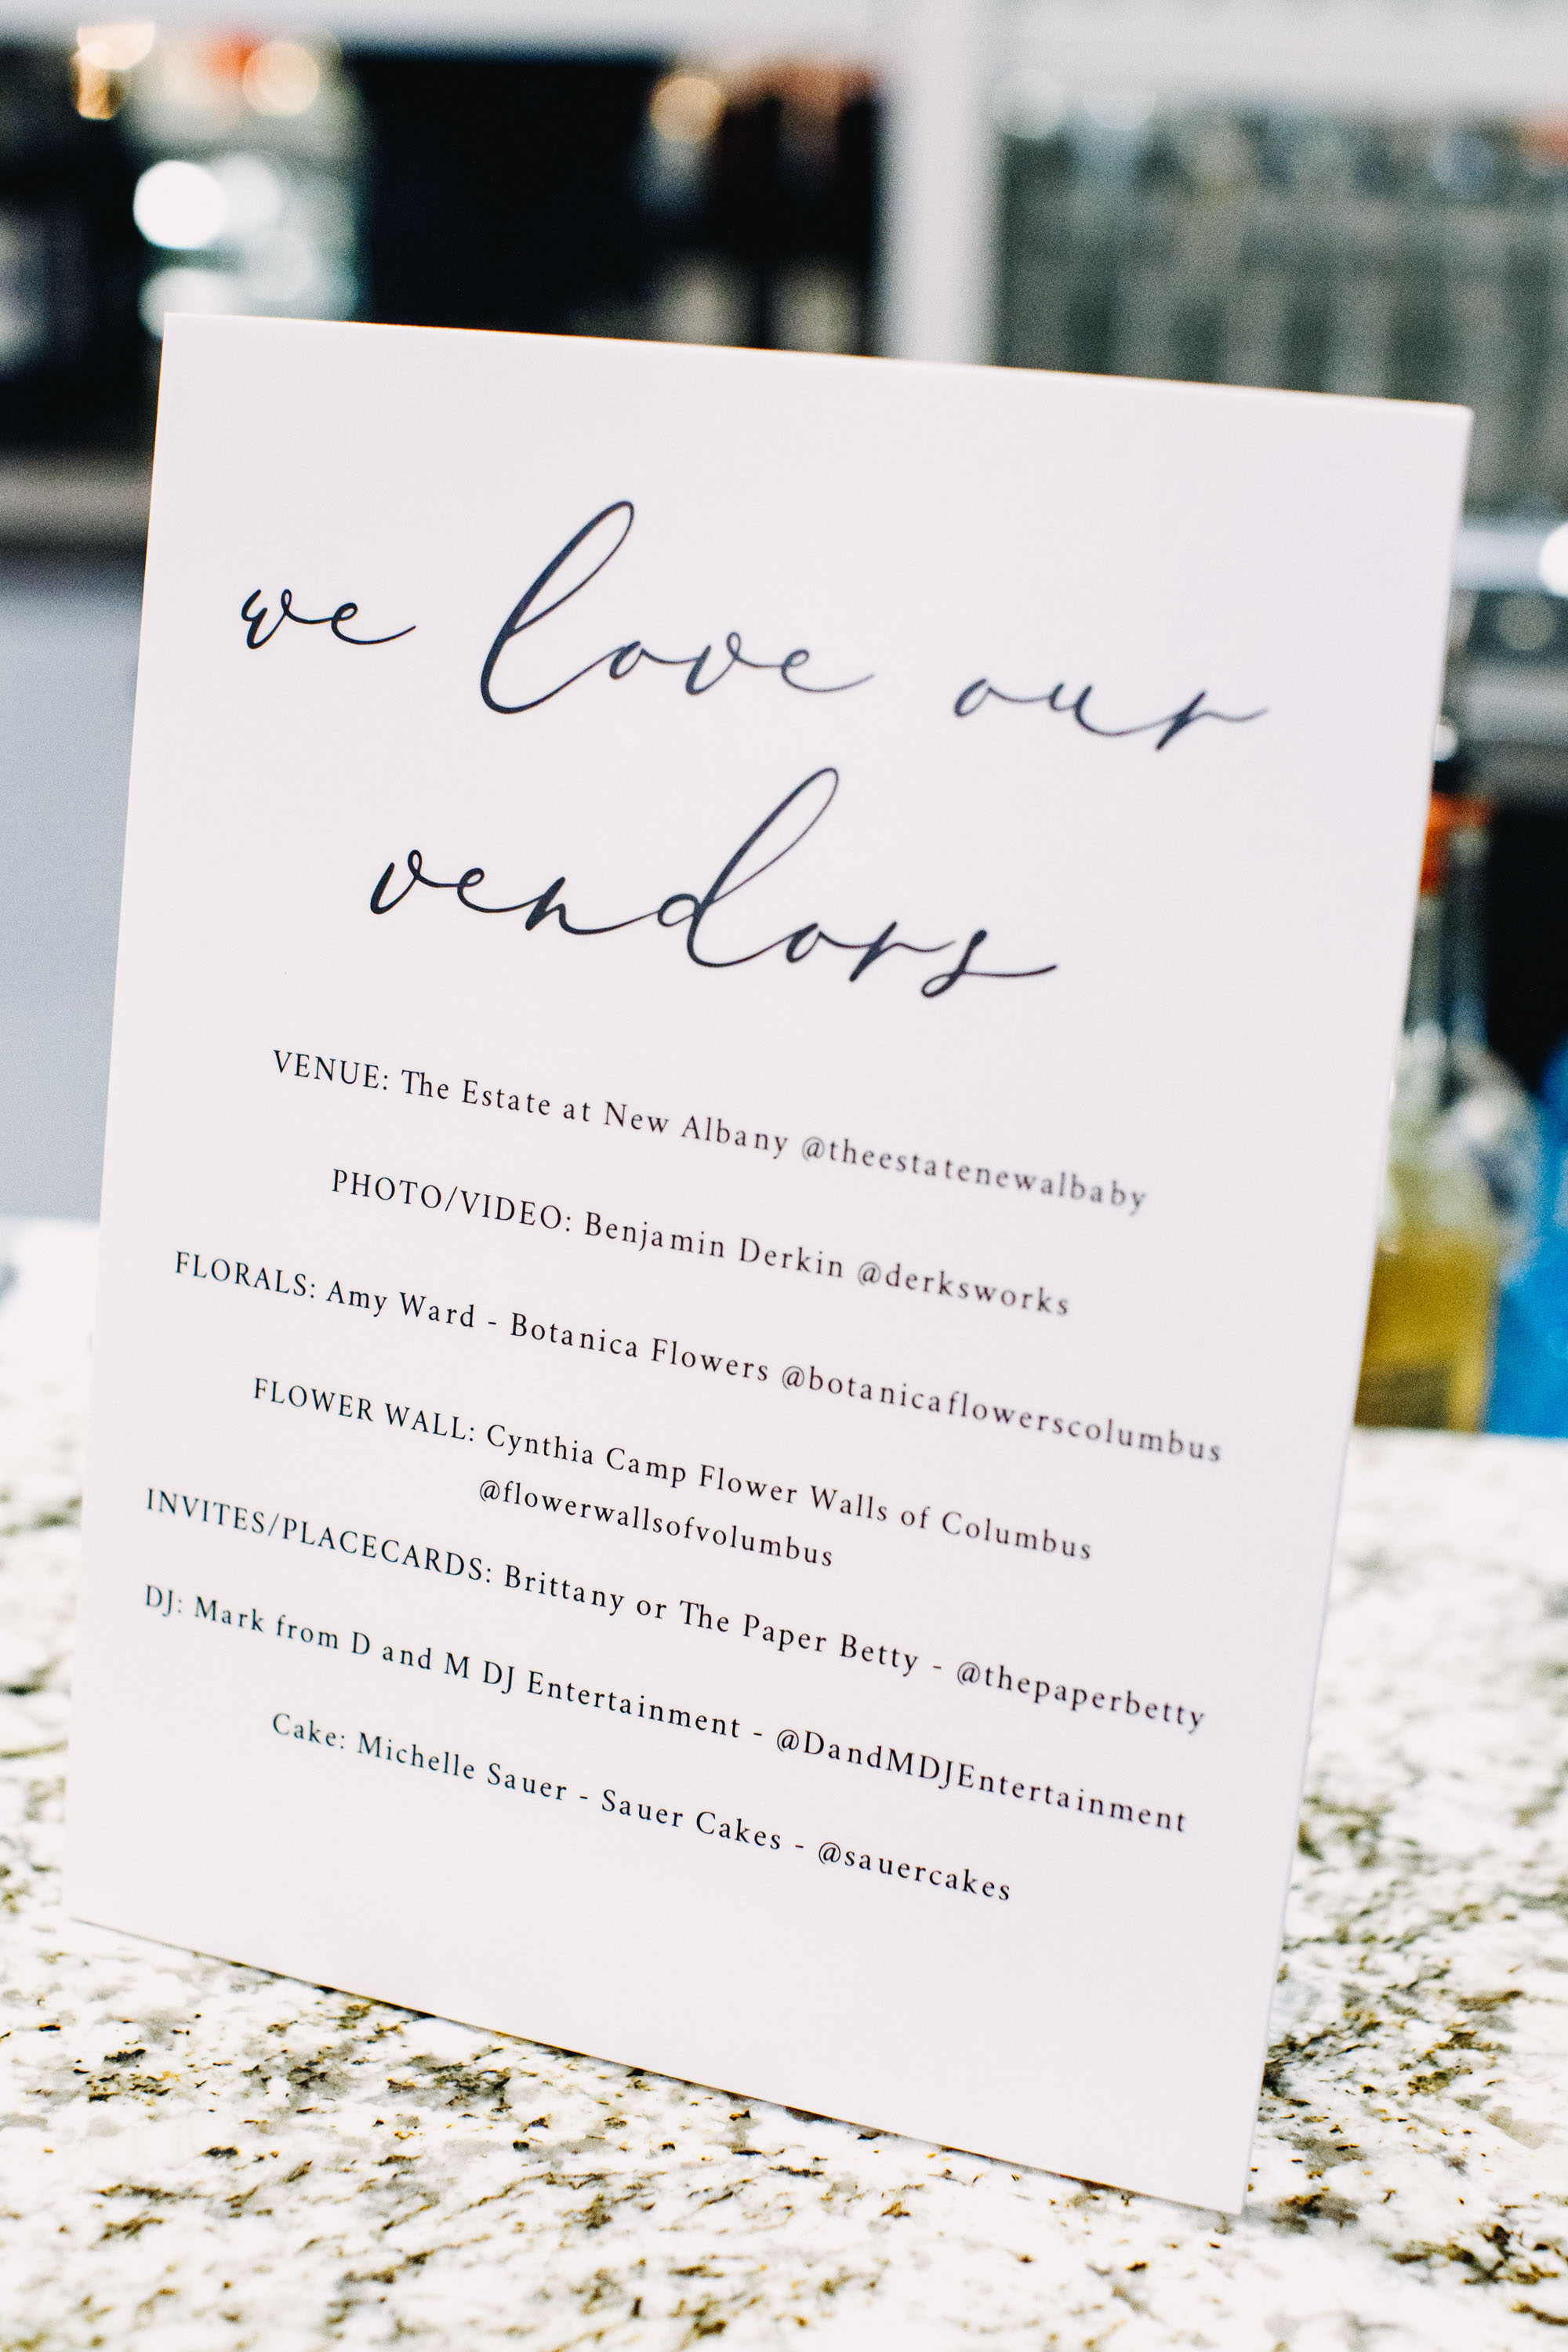 we love our
vendors
VENUE: The Estate at New Albany @theestatenewalbaby
PHOTO/VIDEO: Benjamin Derkin @derksworks
FLORALS: Amy Ward - Botanica Flowers @botanicaflowerscolumbus
FLOWER WALL: Cynthia Camp Flower Walls of Columbus
@flowerwallsofvolumbus
INVITES/PLACECARDS: Brittany or The Paper Betty - @thepaperbetty
DJ: Mark from D and M DJ Entertainment - @DandMDJEntertainment
Cake: Michelle Sauer - Sauer Cakes - @sauercakes